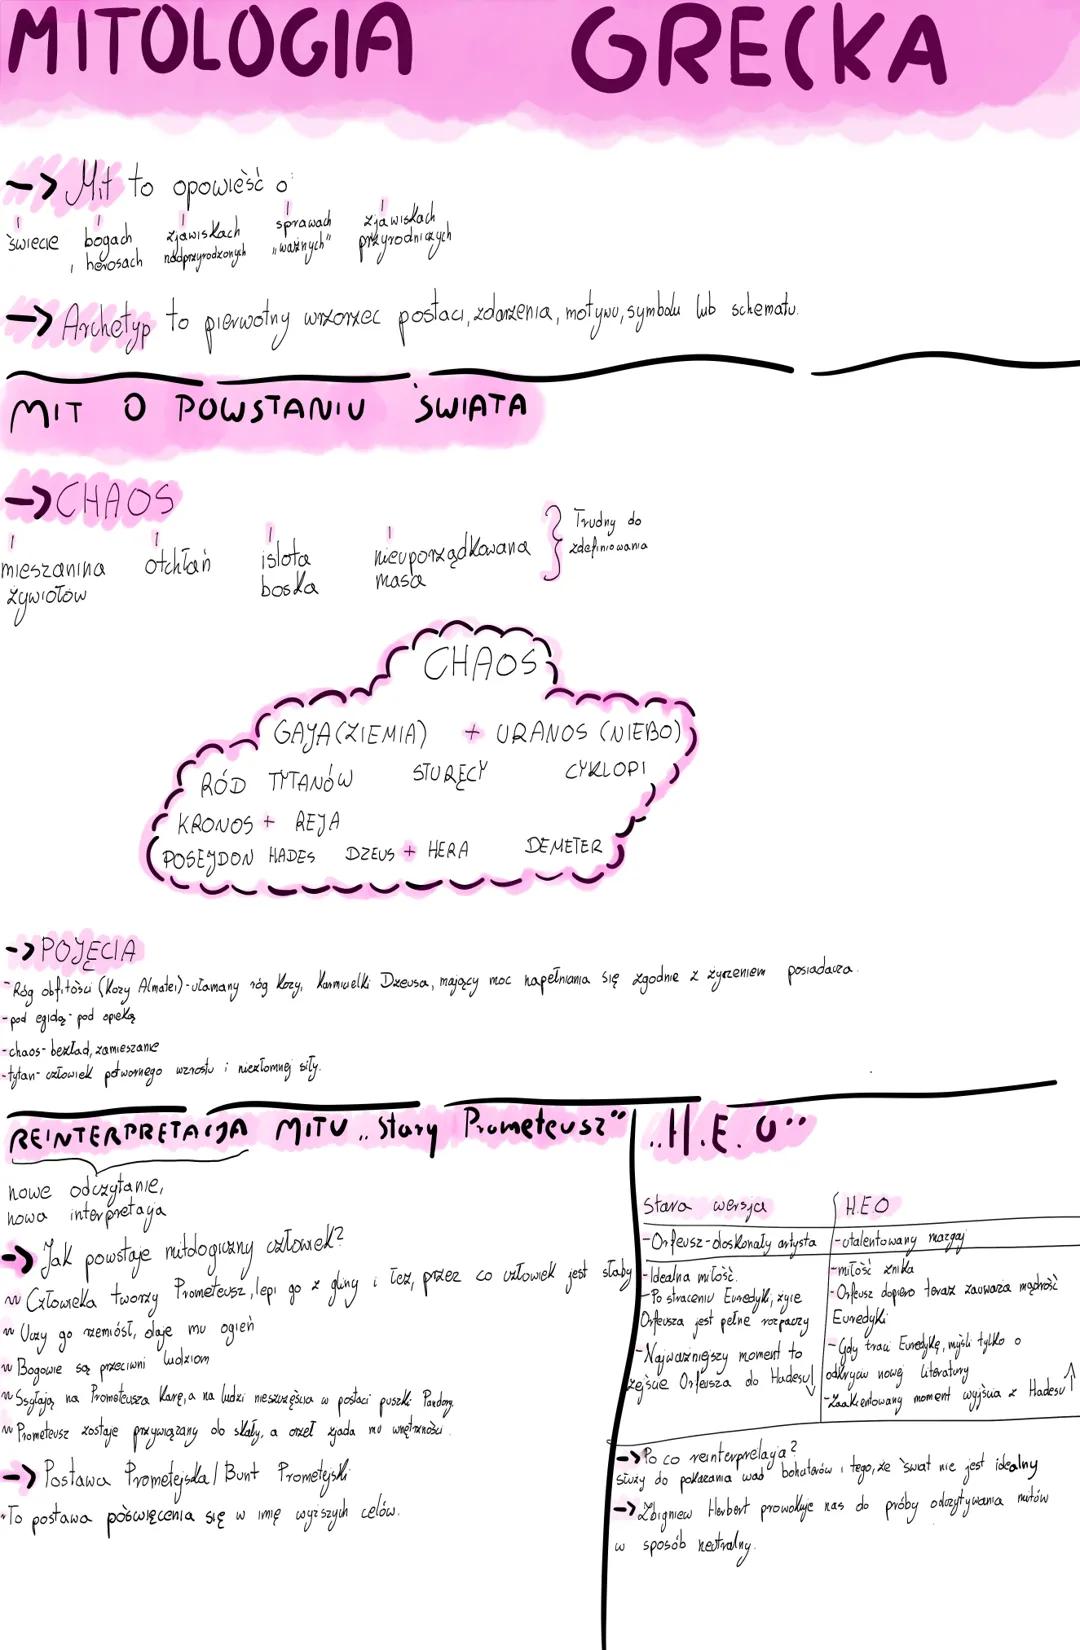 MITOLOGIA GRECKA
-> Mit to opowieść o:
świecie bogach, herosach zjawiskach nadprzyrodzonych sprawach "ważnych" zjawiskach przyrodniczych
-> Archetyp to pierwotny wzorzec postaci, zdarzenia, motywu, symbolu lub schematu.
MIT O POWSTANIU ŚWIATA
-> CHAOS
mieszanina żywiołów otchłań istota boska nieuporządkowana masa } Trudny do zdefiniowania
CHAOS
GAJA (ZIEMIA) + URANOS (NIEBO)
RÓD TYTANÓW STURĘCY CYKLOPI
KRONOS + REJA
POSEJDON HADES DZEUS + HERA DEMETER
-> POJĘCIA
- Róg obfitości (Kozy Almatei) - ułamany róg kozy, karmicielki Dzeusa, mający moc napełniania się zgodnie z życzeniem posiadacza.
- pod egidą - pod opieką
- chaos - bezład, zamieszanie
- tytan - człowiek potwornego wzrostu i niezłomnej siły.
REINTERPRETACJA MITU „Stary Prometeusz"
nowe odczytanie,
nowa interpretacja
-> Jak powstaje mitologiczny człowiek?
~ Człowieka tworzy Prometeusz, lepi go z gliny i łez, przez co człowiek jest słaby
~ Uczy go rzemiósł, daje mu ogień
~ Bogowie są przeciwni ludziom
~ Ssyłają na Prometeusza karę, a na ludzi nieszczęścia w postaci puszki Pandory
~ Prometeusz zostaje przywiązany do skały, a orzeł zjada mu wnętrzności.
-> Postawa Prometejska / Bunt Prometejski
- To postawa poświęcenia się w imię wyższych celów.
„H.E.O"
Stara wersja H.E.O
- Orfeusz - doskonały artysta - utalentowany mazgaj
- Idealna miłość.
- Po straceniu Eurydyki, życie
Orfeusza jest pełne rozpaczy
- Najważniejszy moment to
zejście Orfeusza do Hadesu ↓
- miłość znika
- Orfeusz dopiero teraz zauważa mądrość
Eurydyki
- Gdy traci Eurydykę, myśli tylko o
odkryciu nowej literatury
- Zaakcentowany moment wyjścia z Hadesu ↑
-> Po co reinterpretacja?
służy do pokazania wad bohaterów i tego, że świat nie jest idealny
-> Zbigniew Herbert prowokuje nas do próby odczytywania mitów
w sposób neutralny.